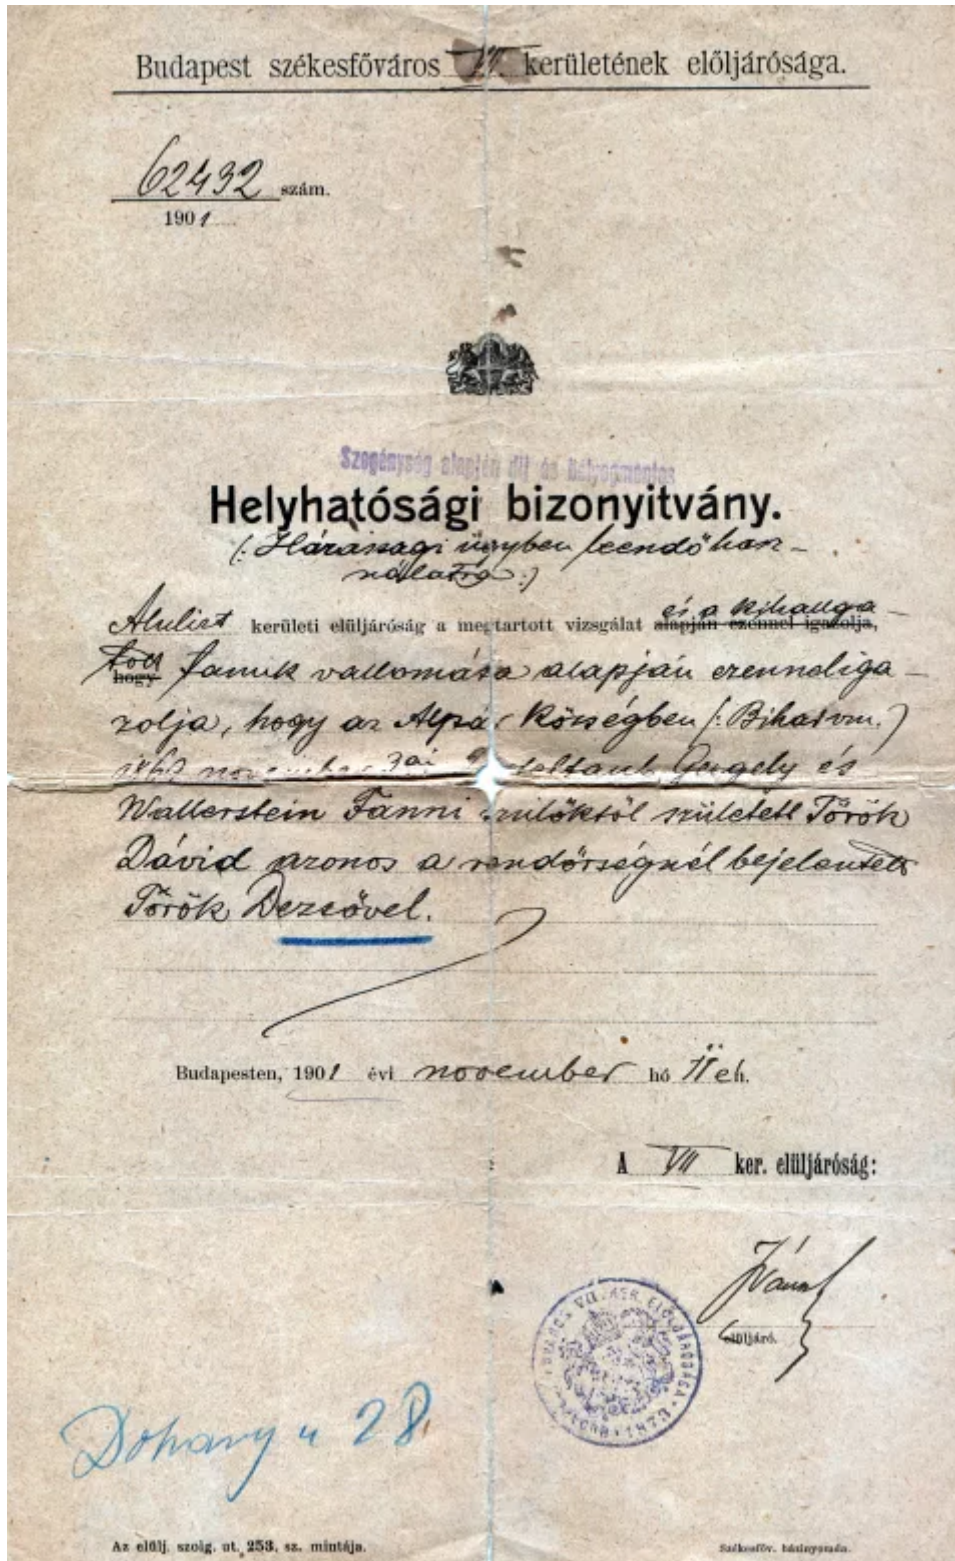 Budapest székesfőváros VII kerületének előljárósága.
62432 szám.
1901
Szegénység alapján díj és bélyegmentes
Helyhatósági bizonyitvány.
(: Házassagi ügyben leendő hasz-
nálatra :)
Alulirt kerületi elüljáróság a megtartott vizsgálat alapján ezennel igazolja, és a kihallga-
hogy tott tanuk vallomása alapján ezennel iga-
zolja, hogy az Alpár községben (: Biharvm. )
november Gergely és
Wallerstein Fanni szülőktől született Török
Dávid azonos a rendőrségnél bejelentett
Török Dezsővel.
Budapesten, 1901 évi november hó 11 én.
A VII ker. elüljáróság:
elüljáró.
VII. KER. ELÖLJÁRÓSÁGA • 1873 •
Dohany u 28.
Az elülj. szolg. ut. 253. sz. mintája.
Székesfőv. házinyomda.